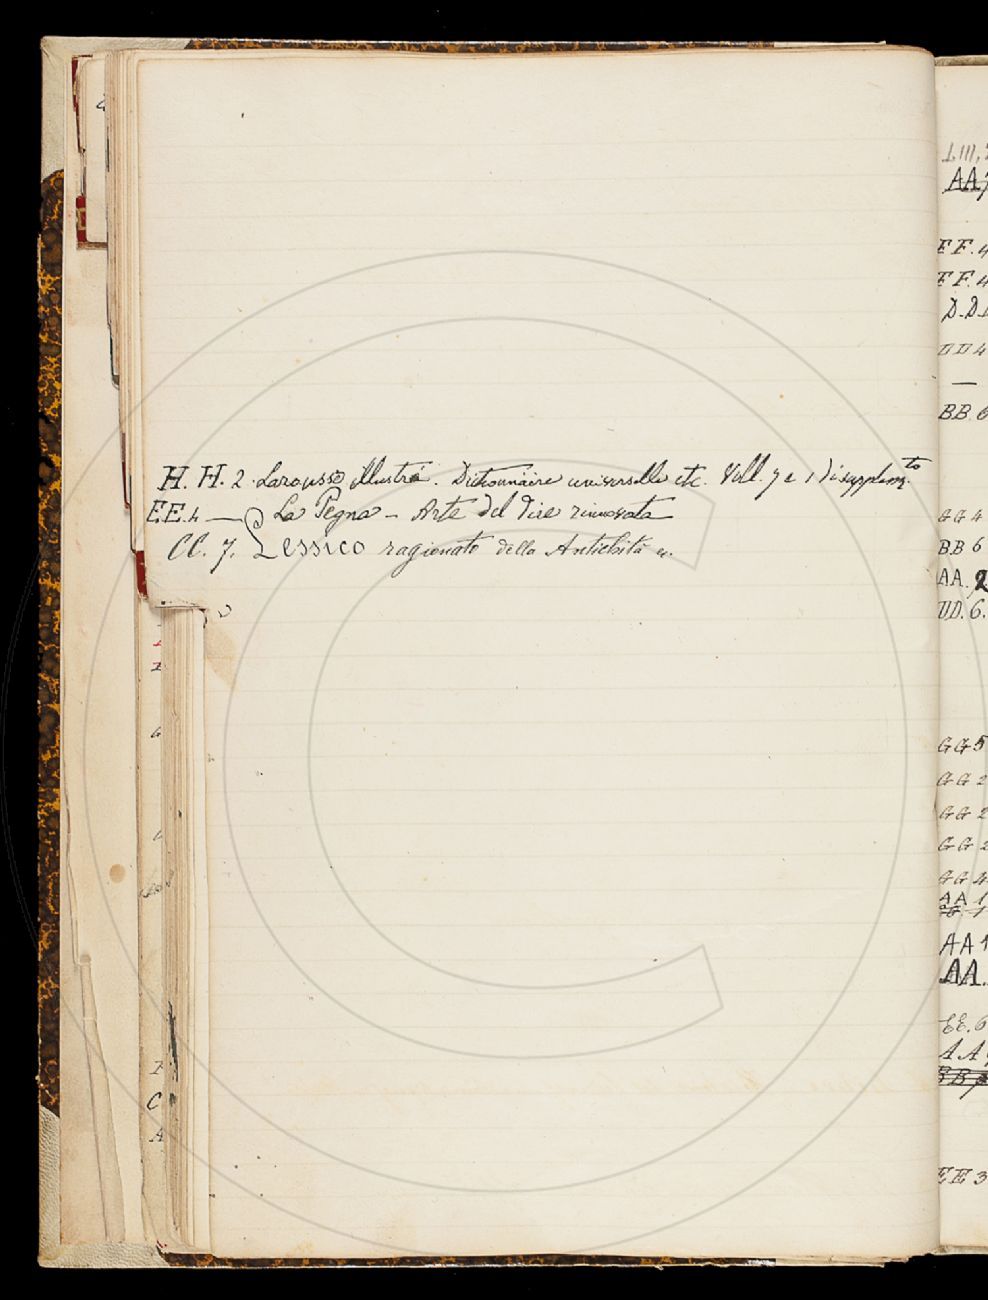 H. H. 2. Larousse illustré. Dictionnaire universelle etc. Voll. 7 e 1 di supplem.to
EE. 4 — La Pegna – Arte del dire rinnovata
CC. 7. Lessico ragionato della Antichità
AA
FF. 4
FF. 4
D. D.
DD 4
—
BB. 6
GG 4
BB 6
AA. 2
DD. 6.
GG 5
GG 2
GG 2
GG 2
GG 4
AA 1
AA 1
AA.
EE. 6
AA
BB
EE 3